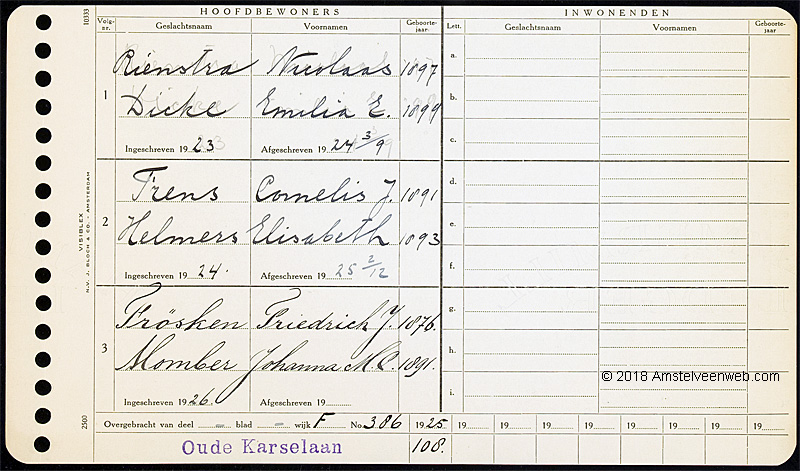 HOOFDBEWONERS INWONENDEN
Volg-nr. Geslachtsnaam Voornamen Geboorte-jaar Lett. Geslachtsnaam Voornamen Geboorte-jaar
10333
1
Rienstra Nicolaas 1897
Dicke Emilia E. 1899
Ingeschreven 1923 Afgeschreven 1924 3/9
a.
b.
c.
2
Trens Cornelis J. 1891
Helmers Elisabeth 1893
Ingeschreven 1924. Afgeschreven 1925 2/12
d.
e.
f.
3
Frösken Friedrich J. 1876.
Momber Johanna M.C. 1891.
Ingeschreven 1926. Afgeschreven 19
g.
h.
i.
VISIBLEX
N.V. J. BLOCH & CO. - AMSTERDAM
2500
© 2018 Amstelveenweb.com
Overgebracht van deel – blad – wijk F No. 386 1925 19 19 19 19 19 19 19
Oude Karselaan 108.